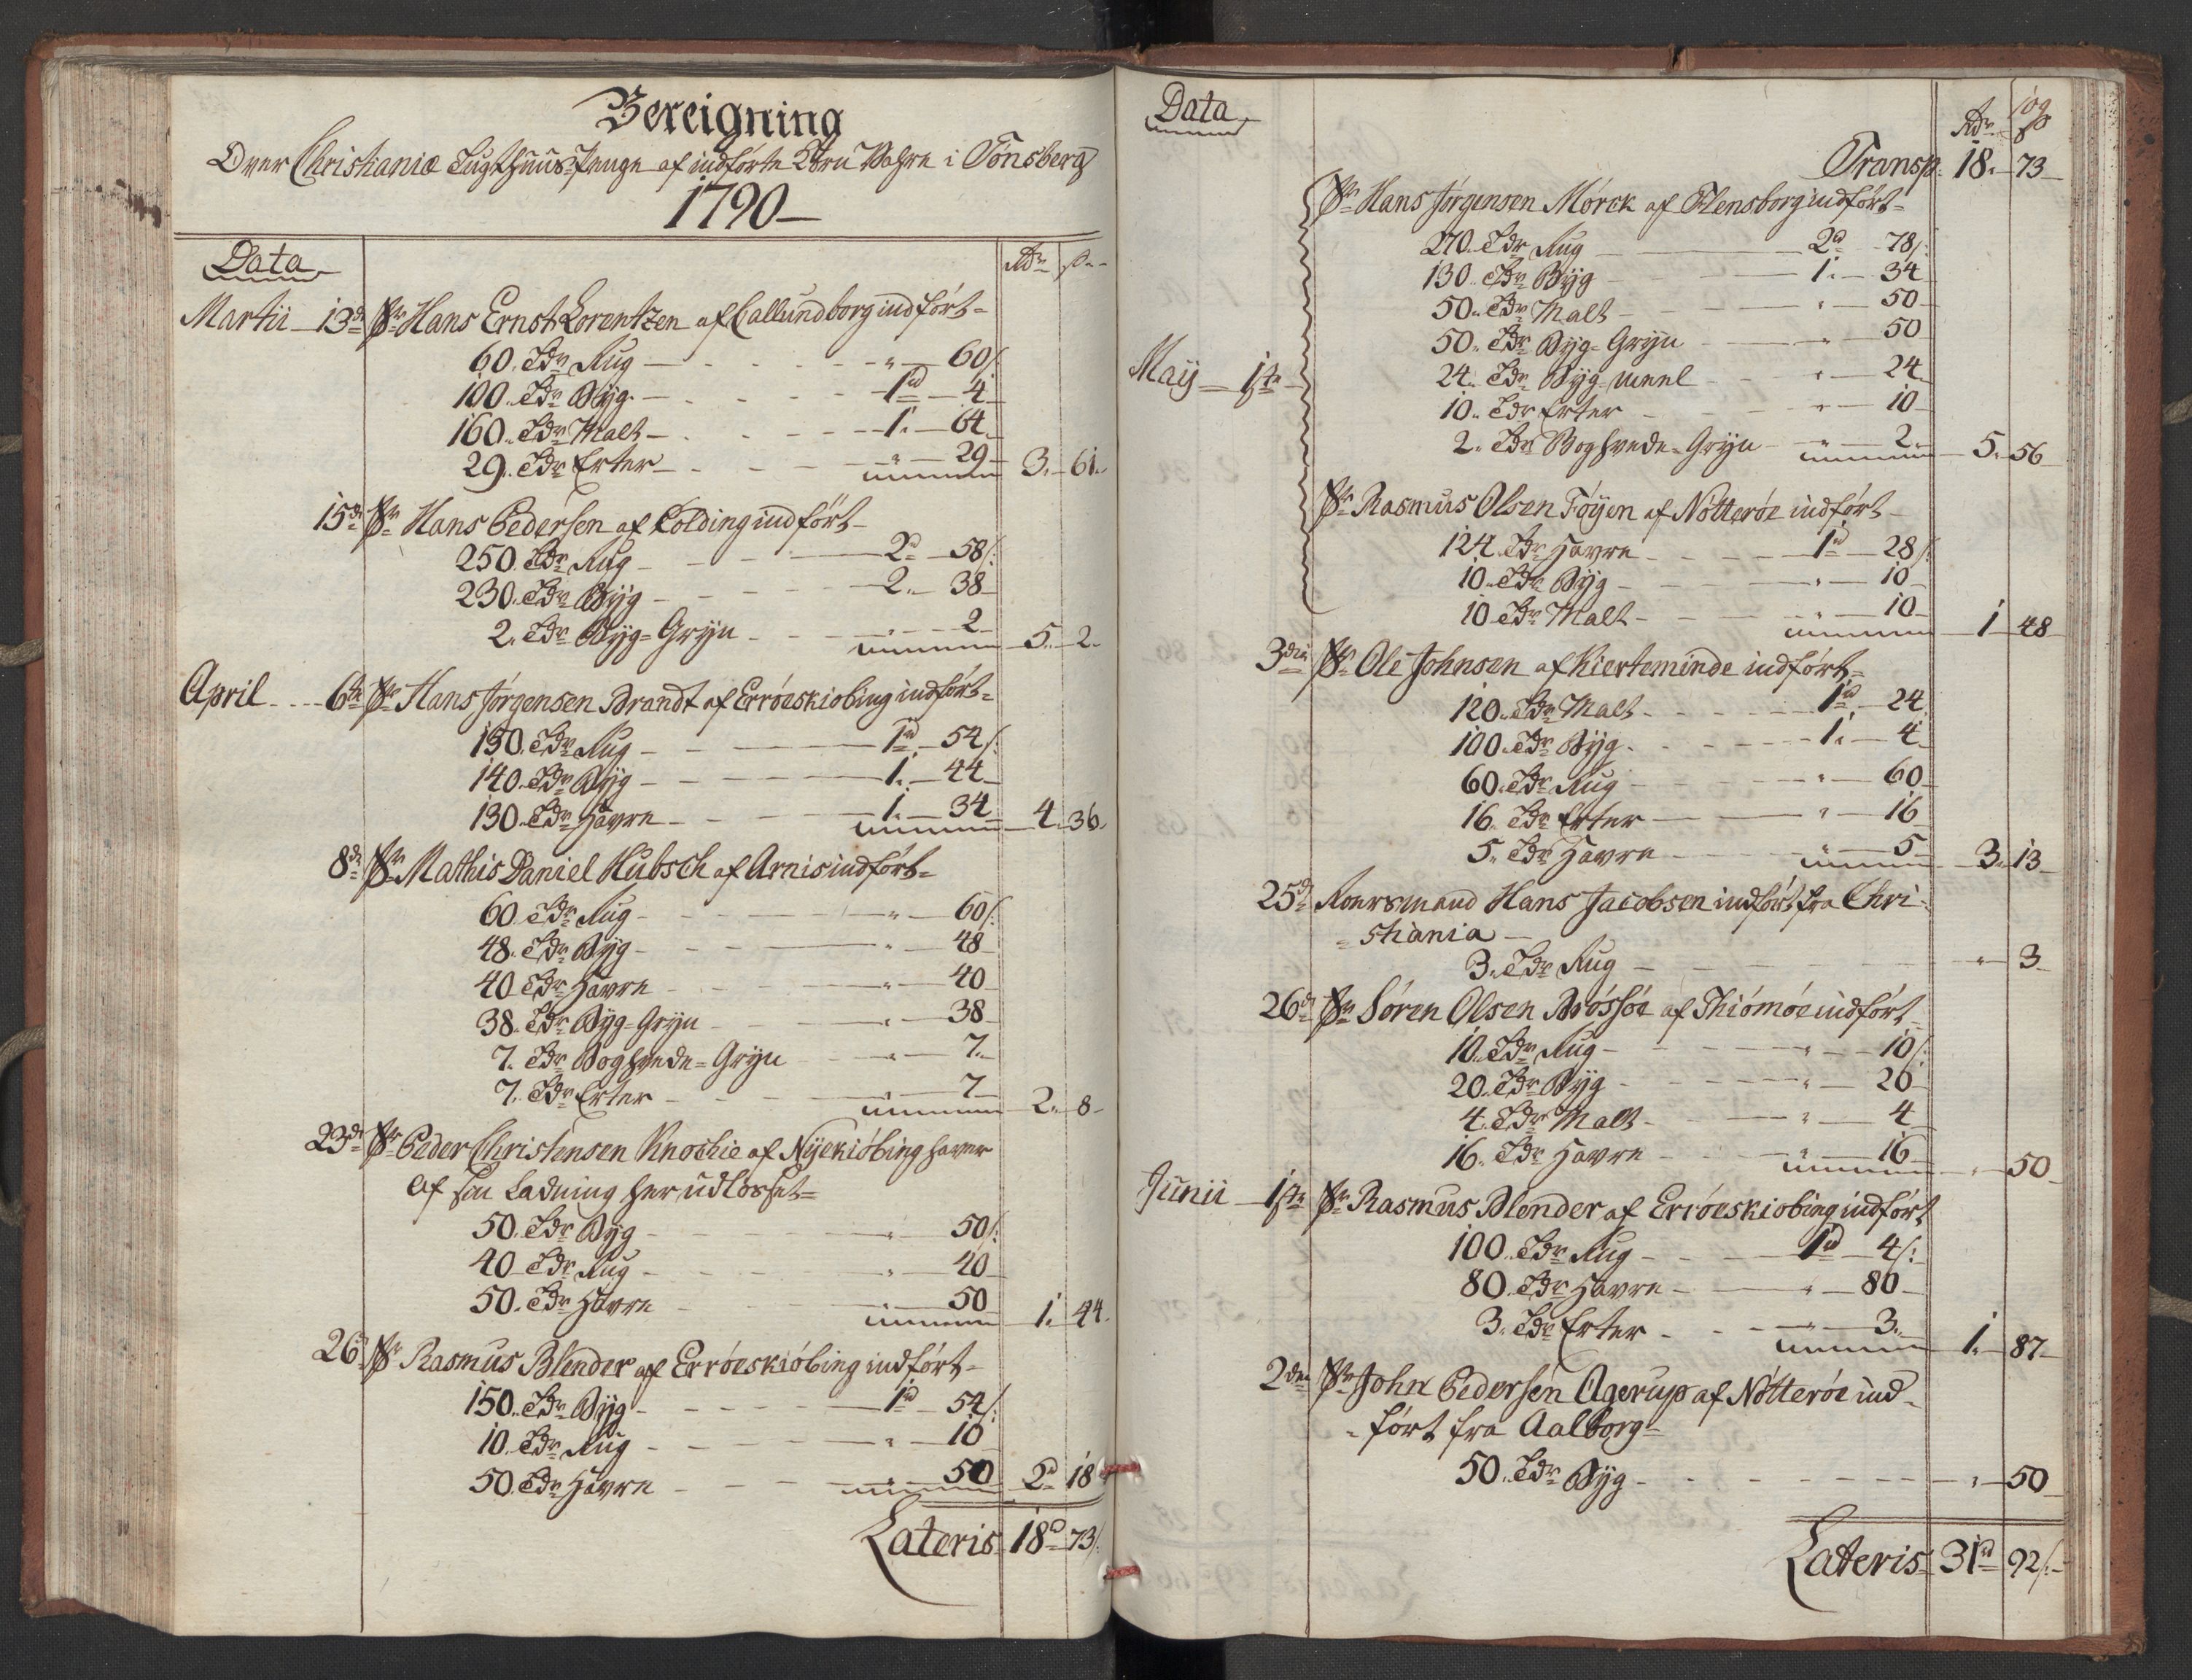 Bereigning
Over Christianiæ Tugthuus-Penge af indførte Korn Wahre i Tönsberg
1790
Data
Rdr ß
Martii 13de Sr Hans Ernst Lorentzen af Callundborg indført
60. Tdr Rug " 60ß
100. Tdr Byg 1d 4
160. Tdr Malt 1. 64
29. Tdr Erter " 29 3. 61.
15de Sr Hans Pedersen af Colding indført
250. Tdr Rug 2d 58ß
230. Tdr Byg 2. 38
2. Tdr Byg-Gryn " 2 5. 2.
April 6te Sr Hans Jørgensen Brandt af Erröeskiobing indført
150. Tdr Rug 1d 54ß
140. Tdr Byg 1. 44
130. Tdr Havre 1. 34 4. 36.
8de Sr Mathis Daniel Hubsch af Arnis indført
60 Tdr Rug " 60ß
48. Tdr Byg " 48
40 Tdr Havre " 40
38. Tdr Byg-Gryn " 38
7. Tdr Boghvede-Gryn " 7.
7. Tdr Erter " 7 2. 8
23de Sr Peder Christensen Knochie af Nyekiöbing haver
af sin Ladning her udlosset
50. Tdr Byg " 50ß
40 Tdr Rug " 40
50. Tdr Havre " 50 1. 44.
26 Sr Rasmus Blender af Erröeskiöbing indført
150. Tdr Byg 1d 54ß
10. Tdr Rug " 10
50. Tdr Havre " 50 2d 18
Lateris 18d 73ß
Data
Rdr ß
Transp. 18. 73
Sr Hans Jørgensen Mørck af Flensborg indført
270. Tdr Rug 2d 78ß
130. Tdr Byg 1. 34
50. Tdr Malt " 50
50. Tdr Byg-Gryn " 50
May 1ste
24. Tdr Byg-meel " 24
10. Tdr Erter " 10
2. Tdr Boghvede-Gryn " 2. 5. 56
Sr Rasmus Olsen Föyen af Nötteröe indført
124 Tdr Havre 1d 28ß
10. Tdr Byg " 10
10 Tdr Malt " 10 1 48
3die Sr Ole Johnsen af Kierteminde indført
120. Tdr Malt 1d 24
100. Tdr Byg 1. 4
60. Tdr Rug " 60
16. Tdr Erter " 16
5. Tdr Havre " 5 3. 13
25de Roersmand Hans Jacobsen indført fra Chri-
stiania
3. Tdr Rug " 3
26de Sr Sören Olsen Brösöe af Thiömöe indført
10. Tdr Rug " 10ß
20. Tdr Byg " 20
4. Tdr Malt " 4
16. Tdr Havre " 16 " 50
Junii 1ste Sr Rasmus Blender af Erröeskiobing indført
100. Tdr Rug 1d 4ß
80. Tdr Havre " 80
3. Tdr Erter " 3. 1. 87
2den Sr John Pedersen Agerup af Nötteröe ind-
ført fra Aalborg
50. Tdr Byg " 50
Lateris 31d 92ß